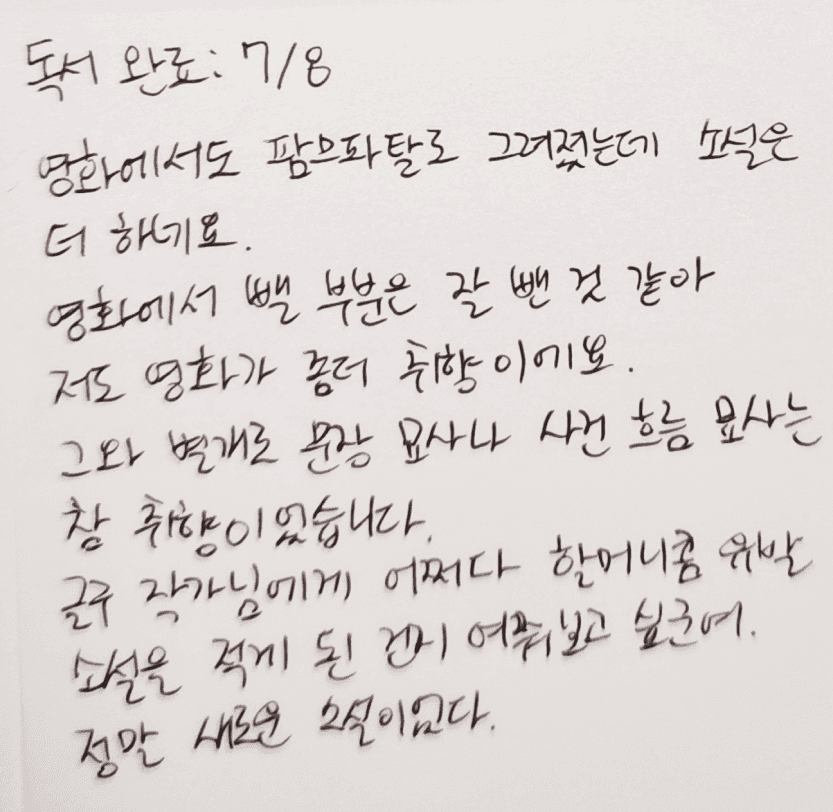 독서 완료: 7/8
영화에서도 팜므파탈로 그려졌는데 소설은
더 하네요.
영화에서 뺄 부분은 잘 뺀 것 같아
저도 영화가 좀더 취향이에요.
그와 별개로 문장 묘사나 사건 흐름 묘사는
참 취향이었습니다.
글쿠 작가님에게 어쩌다 할머니콤 유발
소설을 적게 된 건지 여쭤보고 싶군여.
정말 새로운 소설이었다.